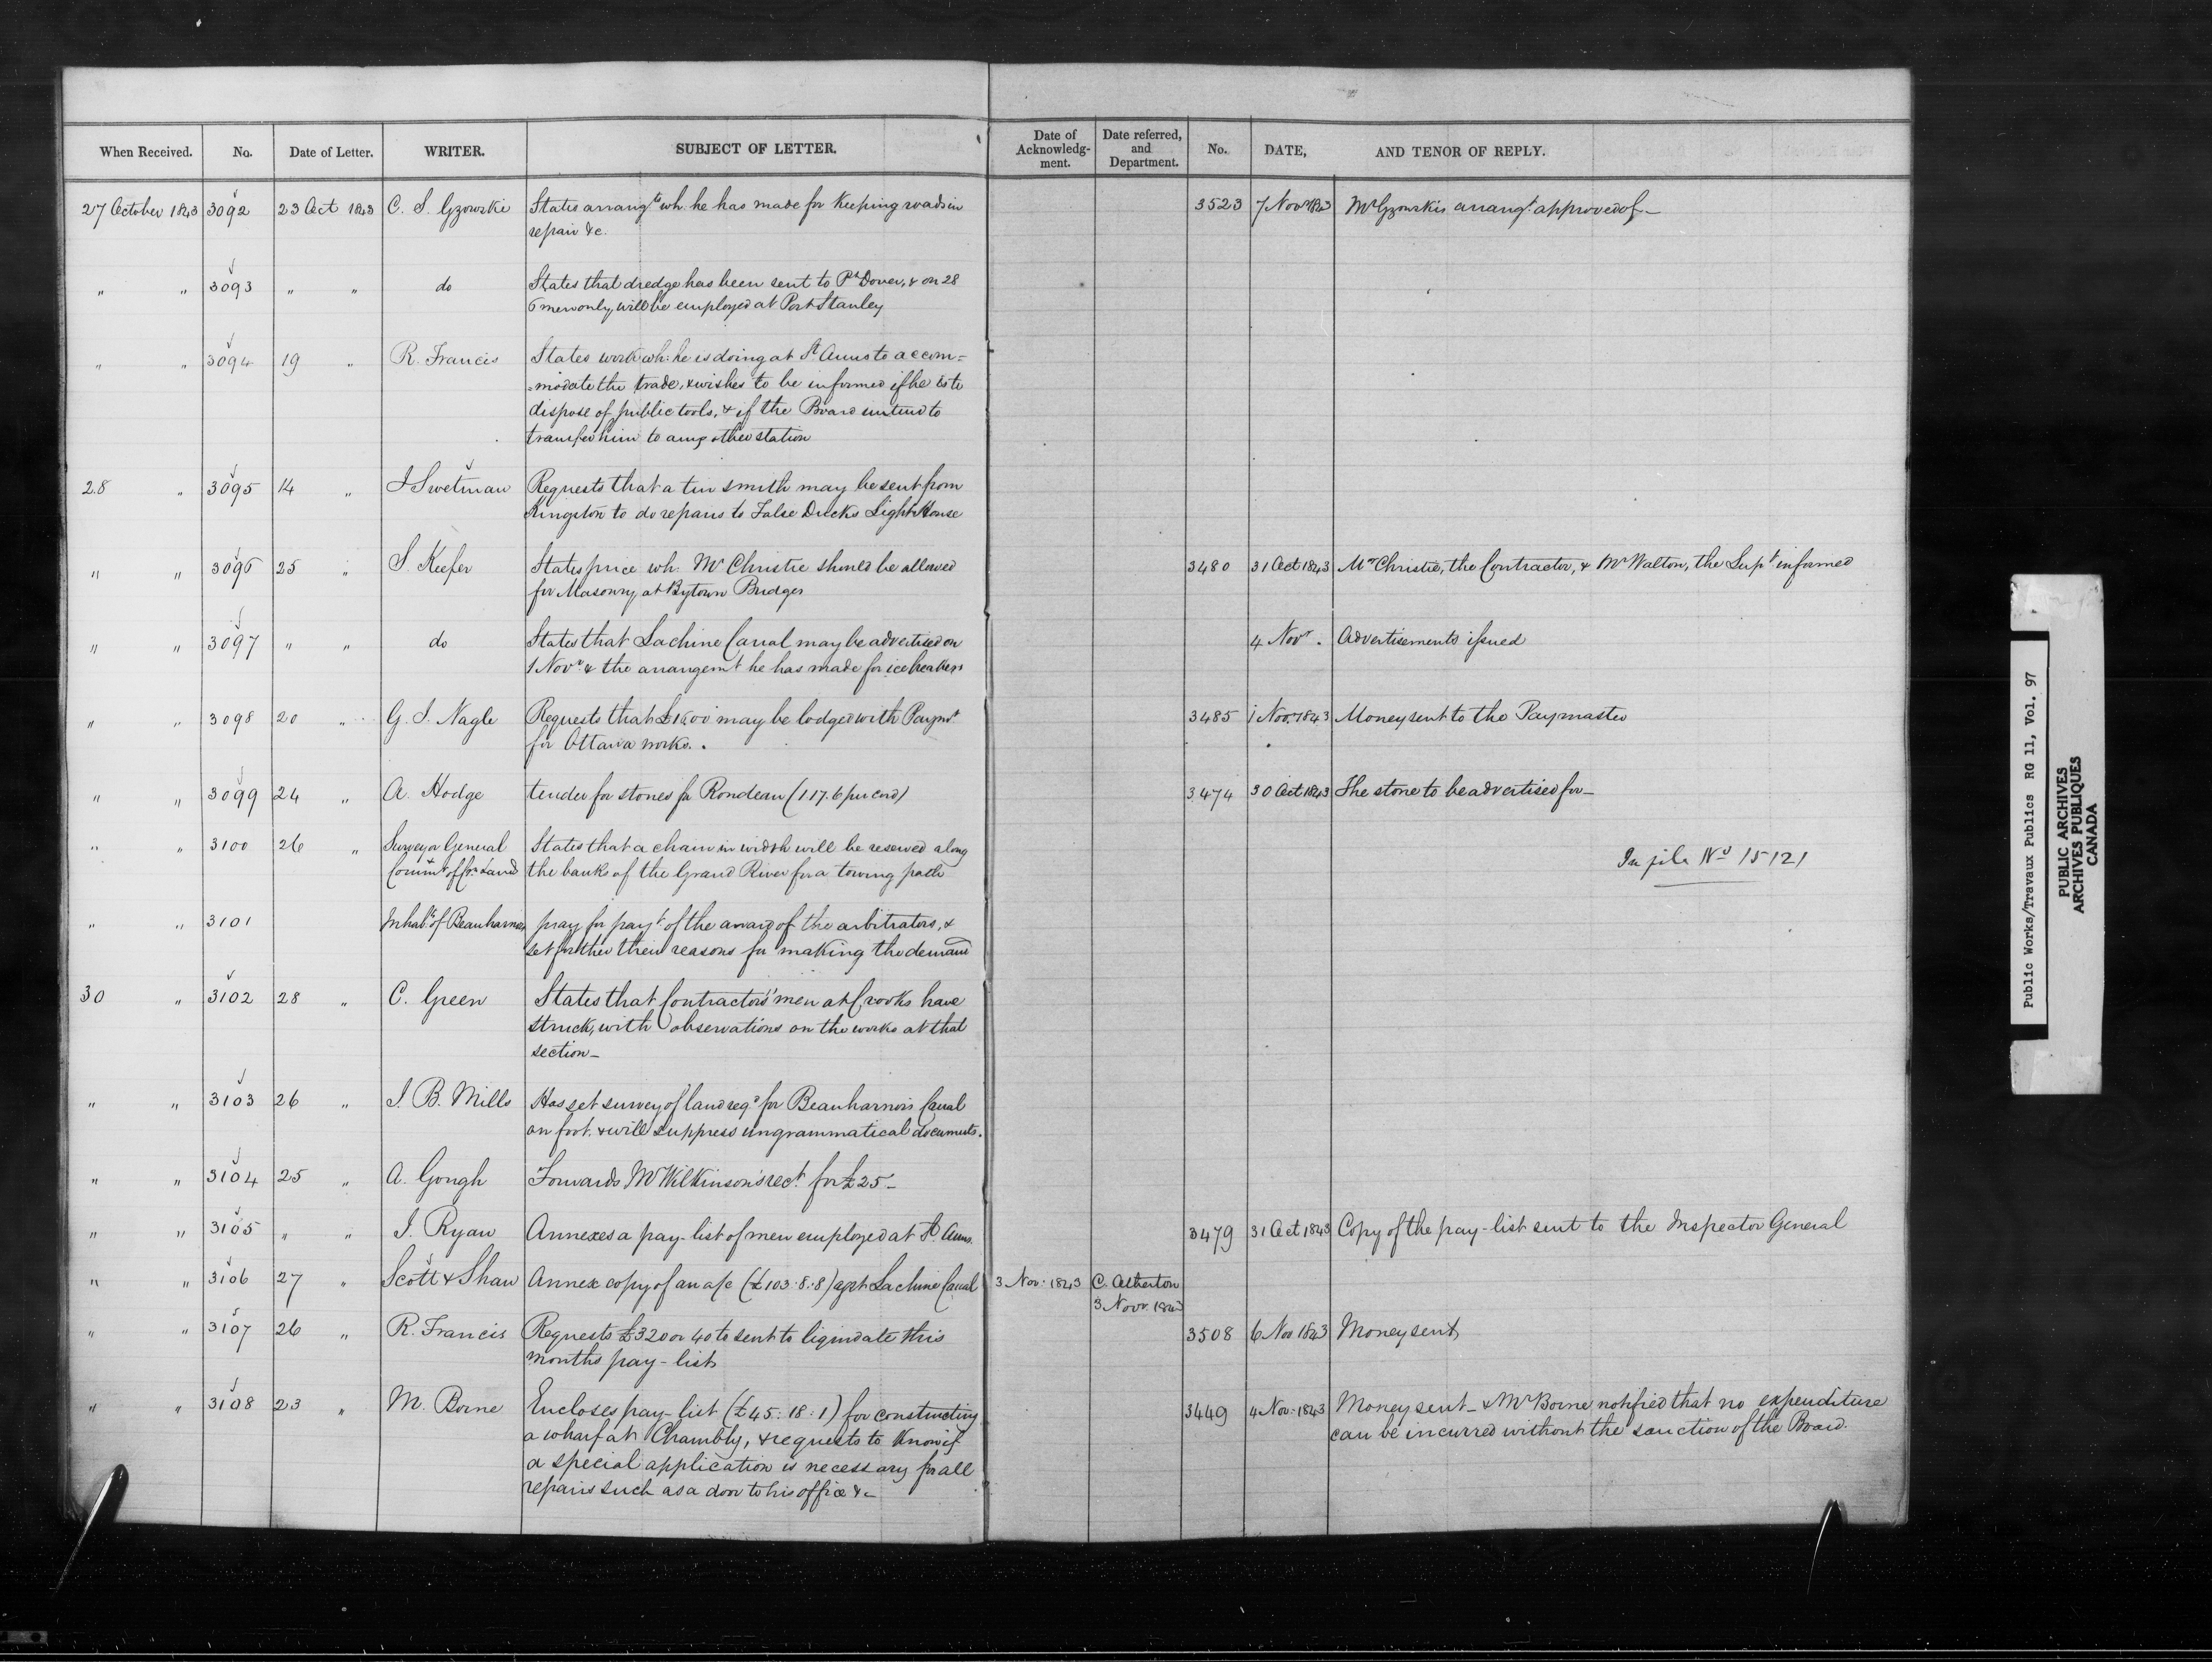 When Received. No. Date of Letter. WRITER. SUBJECT OF LETTER. Date of Acknowledg-ment. Date referred, and Department. No. DATE, AND TENOR OF REPLY.
27 October 1843 3092 23 Oct 1843 C. S. Gzowskie States arrangts wh. he has made for Keeping roads in 3523 7 Novr 1843 Mr Gzowskis arrangt. approved of_
repair &c.
" " 3093 " " do States that dredge has been sent to Pt Dover, & on 28
6 men only, will be employed at Port Stanley
" " 3094 19 " R. Francis States work wh: he is doing at St Anns to accom=
=modate the trade, & wishes to be informed if he is to
dispose of public tools, & if the Board intend to
transfer him to any other station
28 " 3095 14 " J Swetman Requests that a tin smith may be sent from
Kingston to do repairs to False Ducks Light House
" " 3096 25 " S. Keefer States price wh. Mr Christie should be allowed 3480 31 Oct 1843 Mr Christie, the Contractor, & Mr Walton, the Supt informed
for Masonry at Bytown Bridges
" " 3097 " " do States that Lachine Canal may be advertised on 4 Novr. Advertisements issued
1 Novr & the arrangemt he has made for icebreakers
" " 3098 20 " G. J. Nagle Requests that £1500 may be lodged with Paymr 3485 1 Nov. 1843 Money sent to the Paymaster
for Ottawa works.
" " 3099 24 " A. Hodge tender for stones for Rondeau (1.17.6 per cord) 3474 30 Oct 1843 The stone to be advertised for_
" " 3100 26 " Surveyor General States that a chain in width will be reserved along In file No 15121
& Commr of Crn Land the banks of the Grand River for a towing path
" " 3101 Inhabts of Beauharnois pray for payt of the award of the arbitrators, &
set further their reasons for making the demand
30 " 3102 28 " C. Green States that Contractors' men at Crooks have
struck, with observations on the works at that
section_
" " 3103 26 " J. B. Mills Has set survey of land reqd for Beauharnois Canal
on foot, & will suppress ungrammatical documents.
" " 3104 25 " A. Gough Forwards Mr Wilkinson's rect. for £25_
" " 3105 " " J. Ryan Annexes a pay-list of men employed at St. Anns. 3479 31 Oct 1843 Copy of the pay-list sent to the Inspector General
" " 3106 27 " Scott & Shaw Annex copy of an a/c (£103:8:8) agst Lachine Canal 3 Nov: 1843 C. Atherton
3 Novr. 1843
" " 3107 26 " R. Francis Requests £320 or 40 to sent to liquidate this 3508 6 Nov 1843 Money sent
months pay-list
" " 3108 23 " M. Borne Encloses pay-list (£45:18:1) for constructing 3449 4 Nov: 1843 Money sent_ & Mr Borne notified that no expenditure
a wharf at Chambly, & requests to know if can be incurred without the sanction of the Board.
a special application is necessary for all
repairs such as a door to his office &c
Public Works/Travaux Publics RG 11, Vol. 97
PUBLIC ARCHIVES
ARCHIVES PUBLIQUES
CANADA